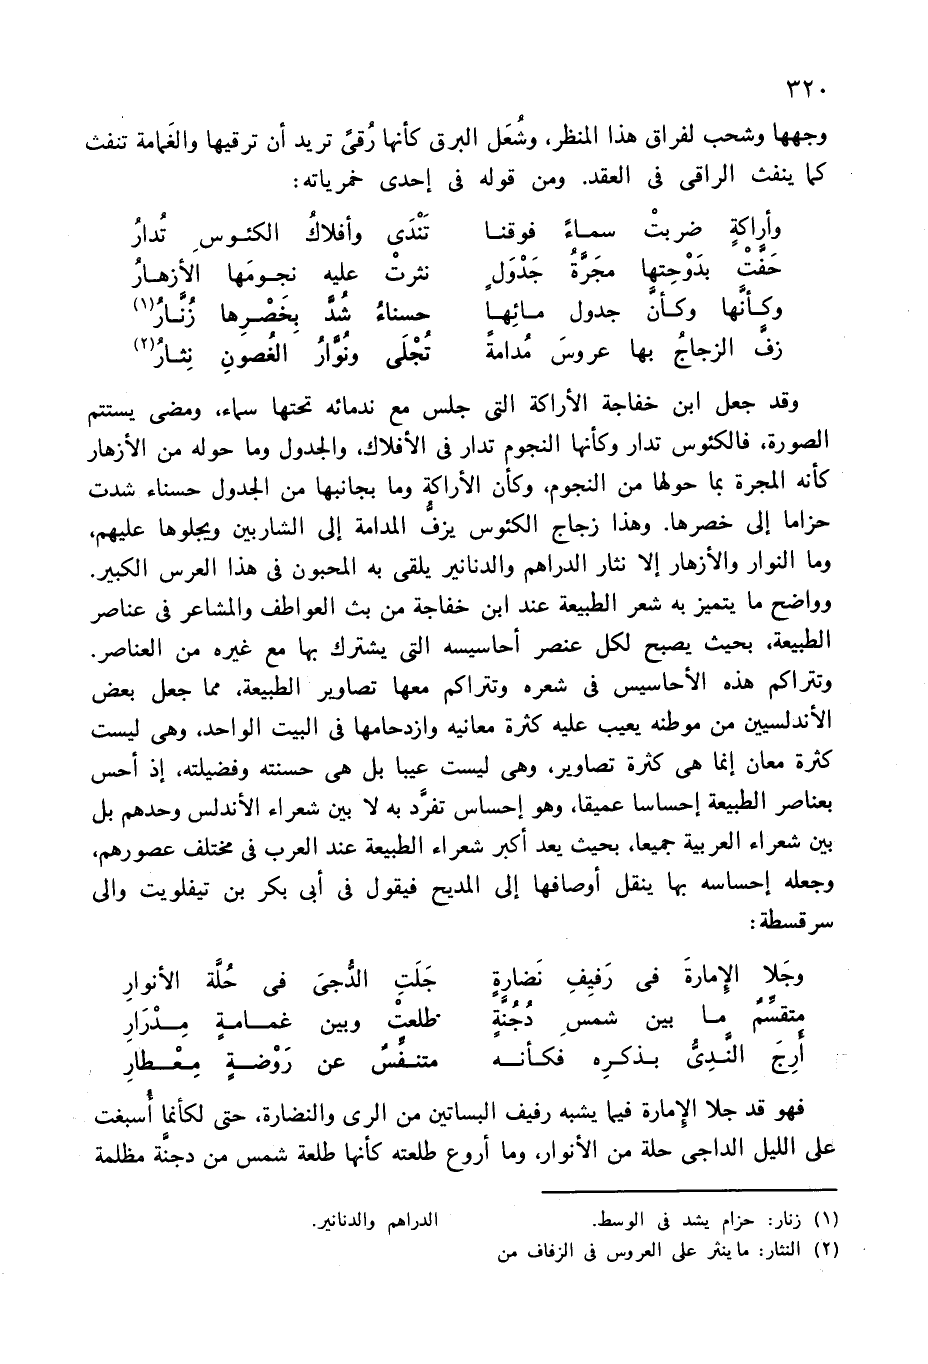 ٣٢٠
وجهها وشحب لفراق هذا المنظر، وشُعَل البرق كأنها رُقىً تريد أن ترقيها والغَمامة تنفث
كما ينفث الراقى فى العقد. ومن قوله فى إحدى خمرياته:
وأراكةٍ ضربتْ سماءً فوقنا تَنْدَى وأفلاكُ الكئوسِ تُدارُ
حَفَّتْ بدَوْحتِها مجَرَّةُ جَدْوَلٍ نثرتْ عليه نجومَها الأزهارُ
وكأنَّها وكأنَّ جدول مائِها حسناءُ شُدَّ بِخَصْرِها زُنَّارُ(١)
زفَّ الزجاجُ بها عروسَ مُدامةً تُجْلَى ونُوَّارُ الغُصونِ نِثارُ(٢)
وقد جعل ابن خفاجة الأراكة التى جلس مع ندمائه تحتها سماء، ومضى يستتم
الصورة، فالكئوس تدار وكأنها النجوم تدار فى الأفلاك، والجدول وما حوله من الأزهار
كأنه المجرة بما حولها من النجوم، وكأن الأراكة وما بجانبها من الجدول حسناء شدت
حزاما إلى خصرها. وهذا زجاج الكئوس يزفُّ المدامة إلى الشاربين ويجلوها عليهم،
وما النوار والأزهار إلا نثار الدراهم والدنانير يلقى به المحبون فى هذا العرس الكبير.
وواضح ما يتميز به شعر الطبيعة عند ابن خفاجة من بث العواطف والمشاعر فى عناصر
الطبيعة، بحيث يصبح لكل عنصر أحاسيسه التى يشترك بها مع غيره من العناصر.
وتتراكم هذه الأحاسيس فى شعره وتتراكم معها تصاوير الطبيعة، مما جعل بعض
الأندلسيين من موطنه يعيب عليه كثرة معانيه وازدحامها فى البيت الواحد، وهى ليست
كثرة معان إنما هى كثرة تصاوير، وهى ليست عيبا بل هى حسنته وفضيلته، إذ أحس
بعناصر الطبيعة إحساسا عميقا، وهو إحساس تفرَّد به لا بين شعراء الأندلس وحدهم بل
بين شعراء العربية جميعا، بحيث يعد أكبر شعراء الطبيعة عند العرب فى مختلف عصورهم،
وجعله إحساسه بها ينقل أوصافها إلى المديح فيقول فى أبى بكر بن تيفلويت والى
سرقسطة:
وجَلا الإِمارةَ فى رَفيفِ نَضارةٍ جَلَتِ الدُّجىَ فى حُلَّة الأنوارِ
متقسِّمٌ ما بين شمسِ دُجُنَّةٍ طلعتْ وبين غمامةٍ مِدْرَارِ
أَرِجَ النَّدِىُّ بذكرِه فكأنه متنفَّسُ عن رَوْضةٍ مِعْطارِ
فهو قد جلا الإمارة فيما يشبه رفيف البساتين من الرى والنضارة، حتى لكأنما أُسبغت
على الليل الداجى حلة من الأنوار، وما أروع طلعته كأنها طلعة شمس من دجنَّة مظلمة
(١) زنار: حزام يشد فى الوسط.
(٢) النثار: ما ينثر على العروس فى الزفاف من
الدراهم والدنانير.